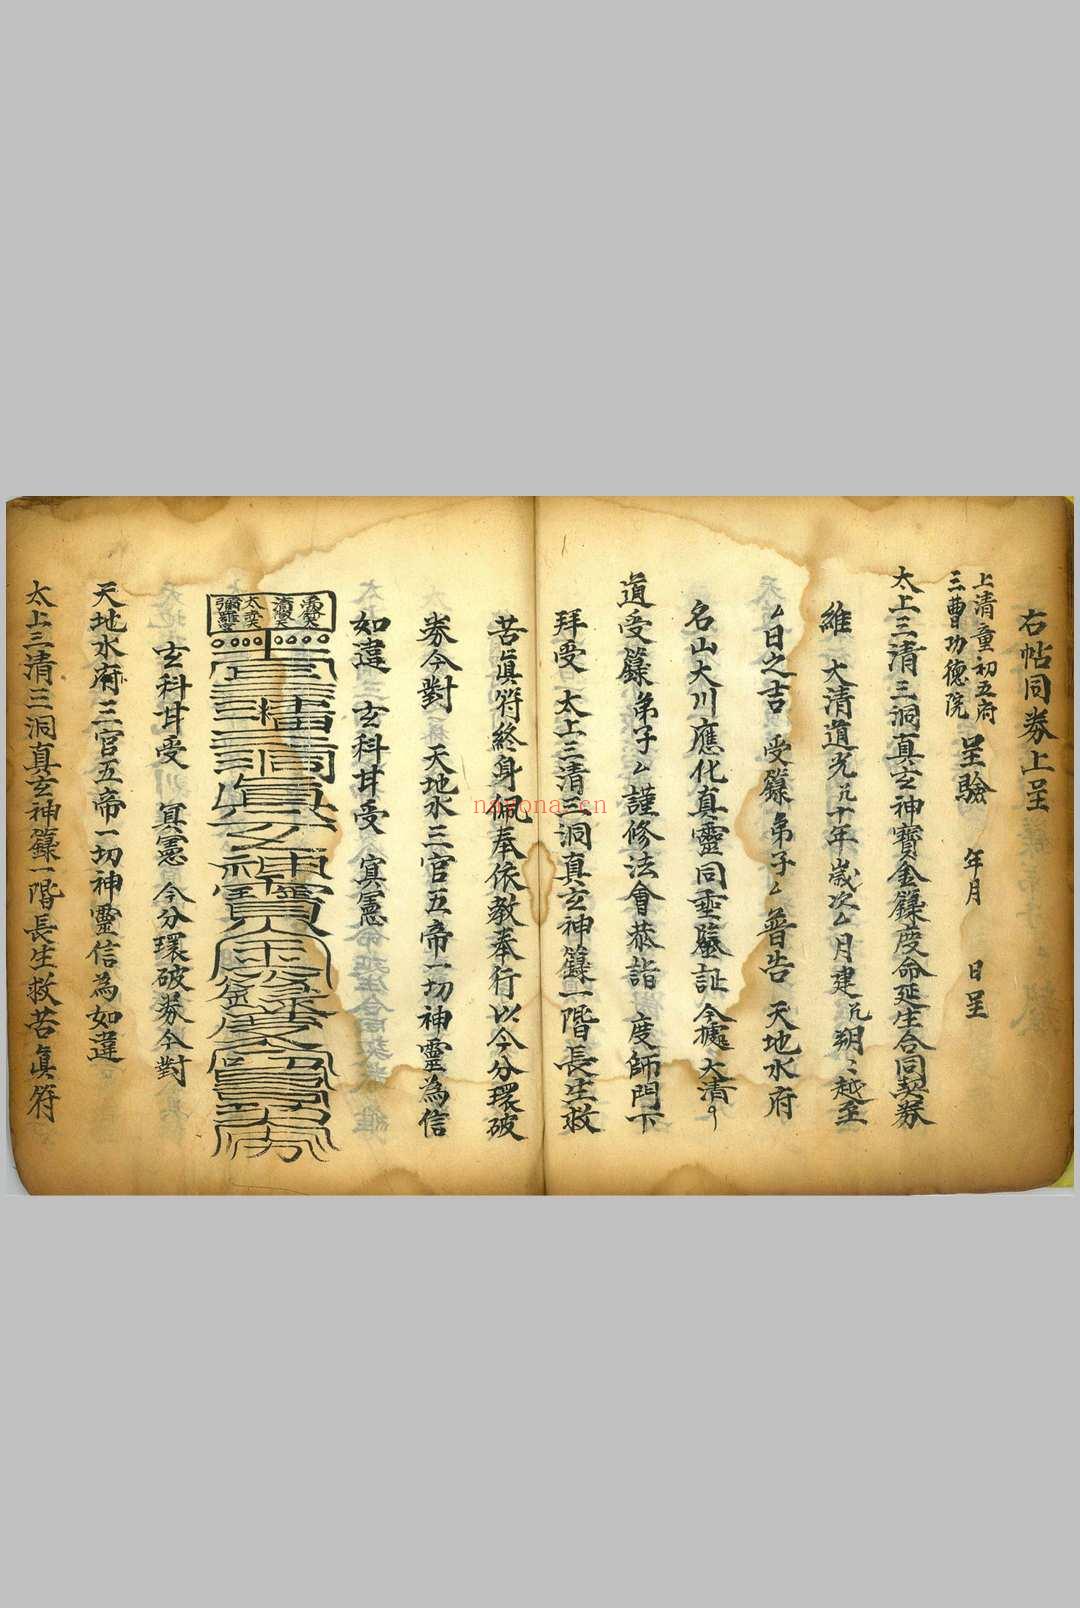 右帖同券上呈
上清童初五府
三曹功德院 呈驗 年月 日呈
太上三清三洞真玄神寶金籙度命延生合同契券
維 大清道光元十年歲次厶月建元朔〻越至
厶日之吉 受籙弟子厶 普告 天地水府
名山大川應化真靈同垂鑒証 今據 大清
道受籙弟子厶謹修法會恭詣 度師門下
拜受 太上三清三洞真玄神籙一階長生救
苦真符終身佩奉依教奉行以今分環破
券今對 天地水三官五帝一切神靈為信
如違 玄科甘受 冥憲
玄科甘受 冥憲 今分環破券今對
天地水府三官五帝一切神靈信為如違
太上三清三洞真玄神籙一階長生救苦真符
nayona.cn